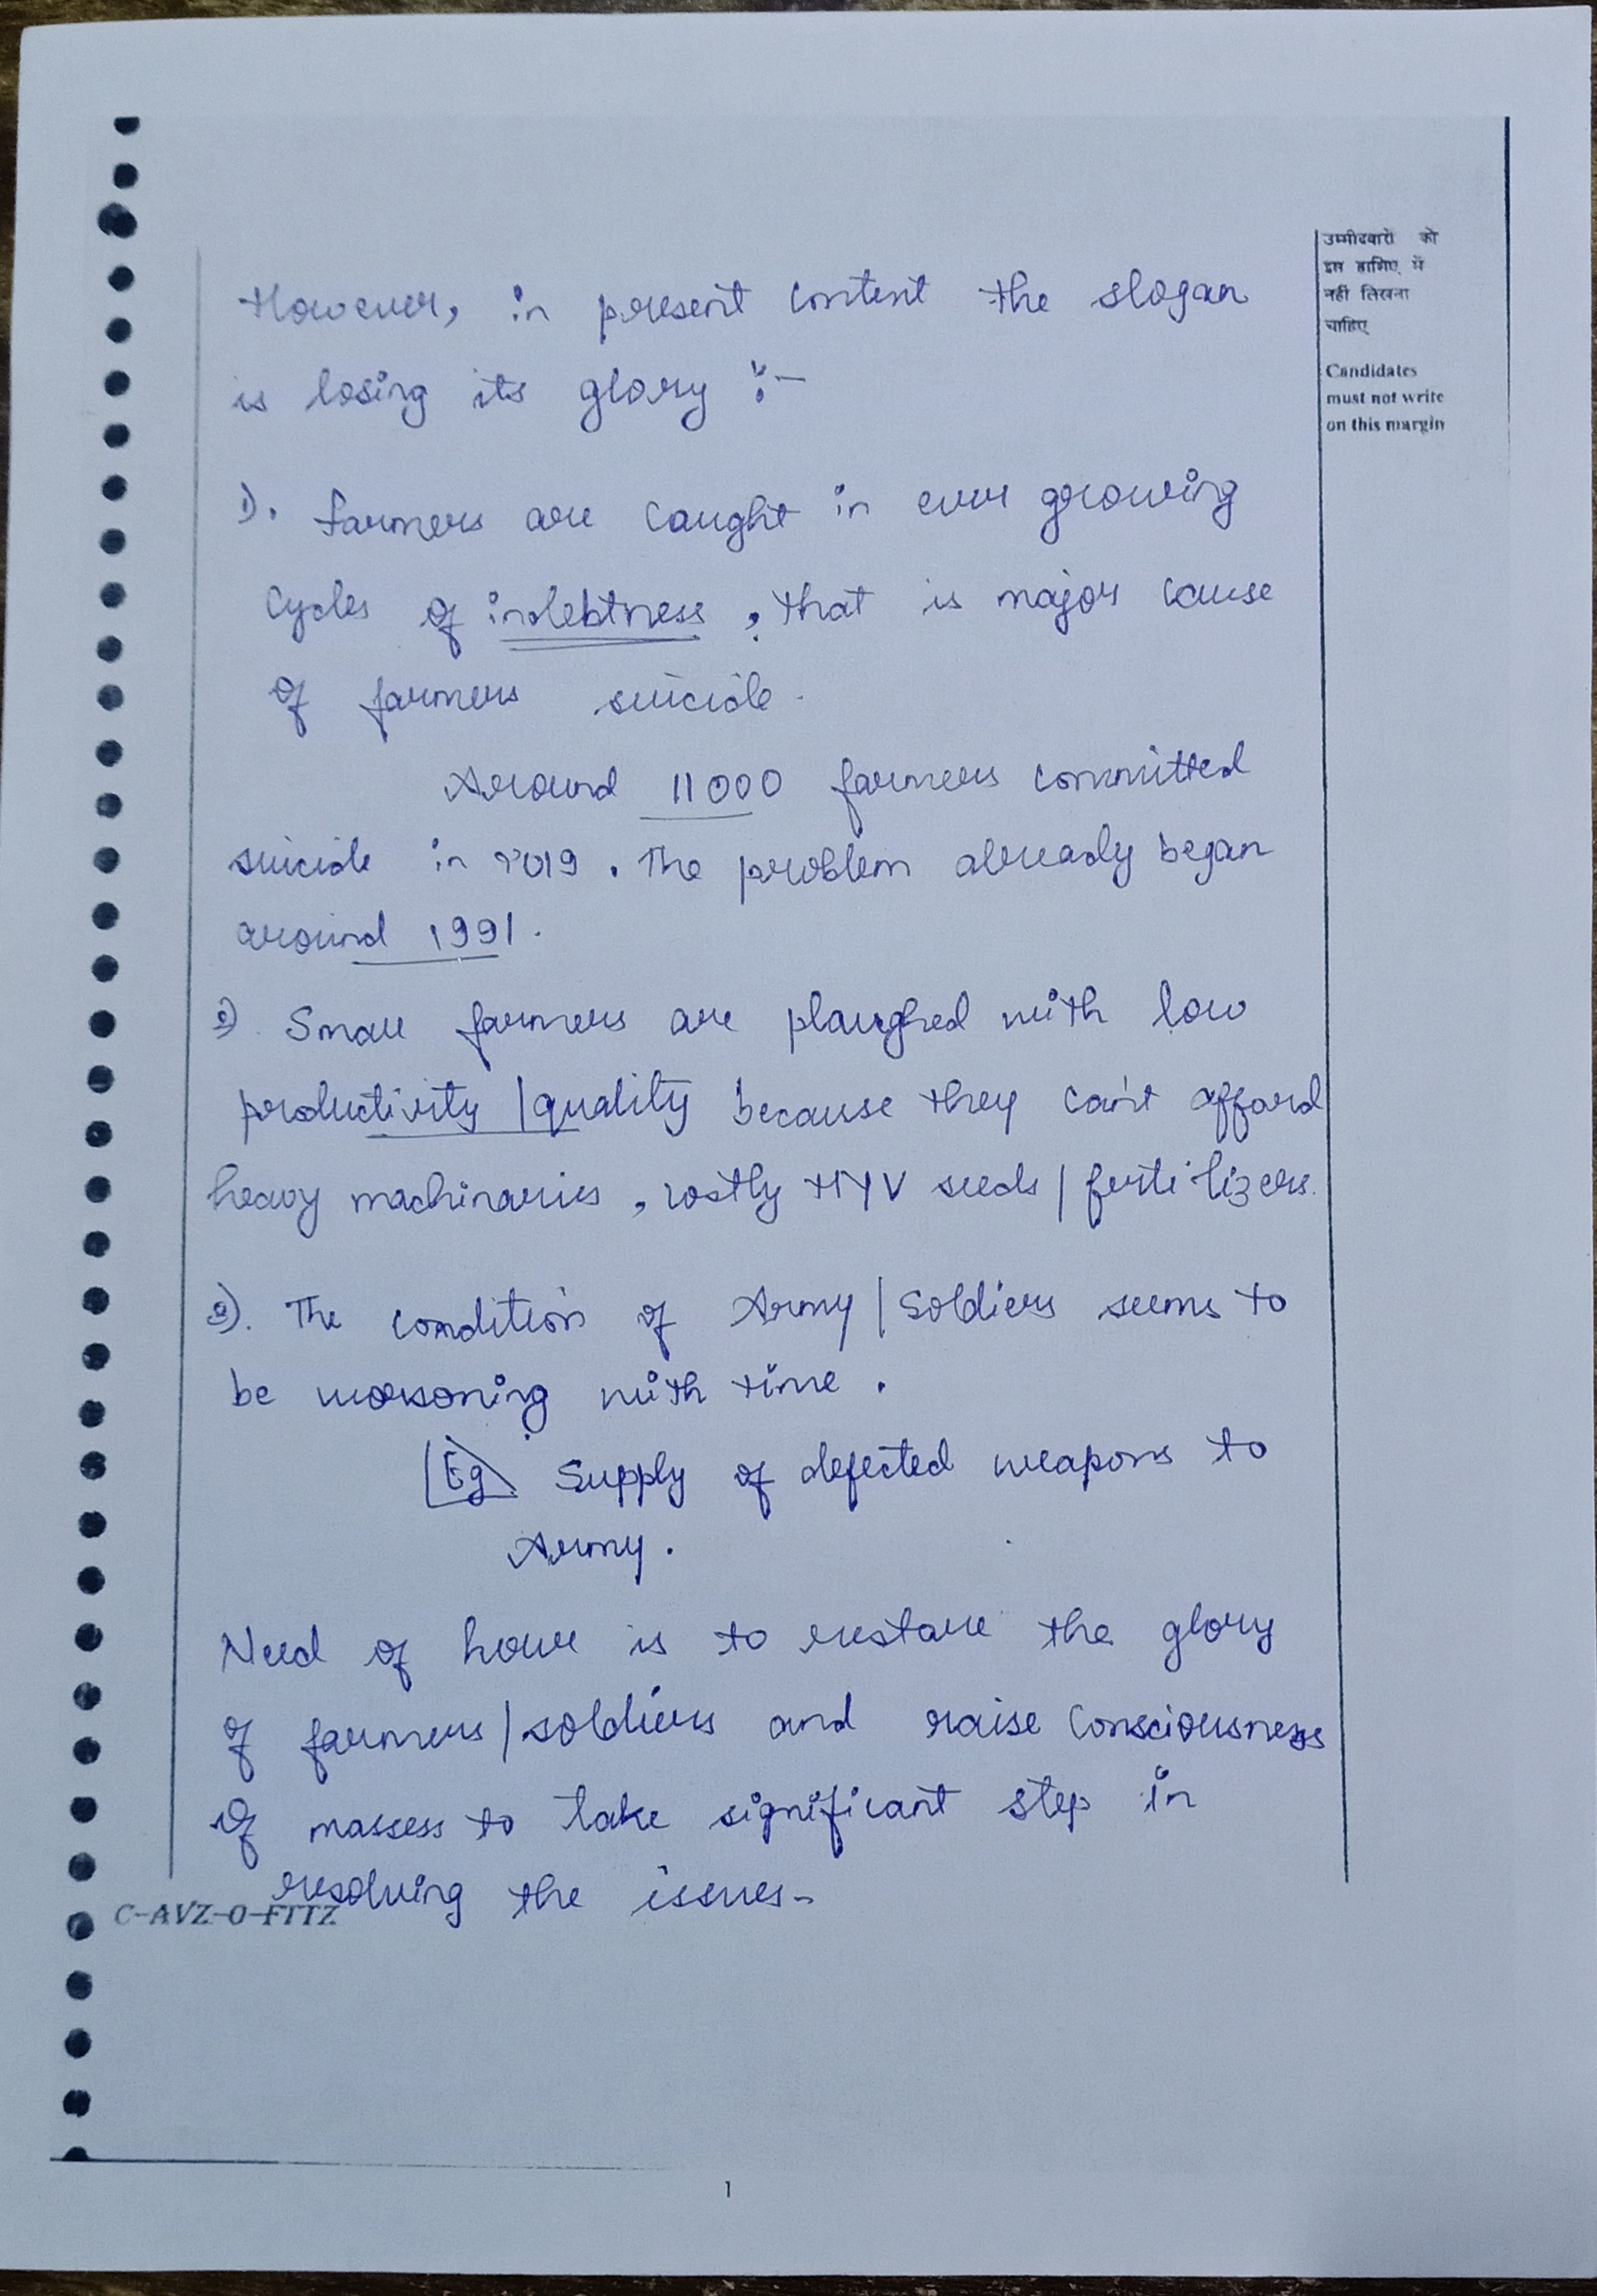 However, in present content the slogan
is losing its glory :-
1). farmers are caught in ever growing
cycles of indebtness, that is major cause
of farmers suicide.
Around 11000 farmers committed
suicide in 2019. The problem already began
around 1991.
2) Small farmers are plaughed with low
productivity/quality because they can't afford
heavy machinaries, costly HYV seeds/fertilizers.
3). The condition of Army/Soldiers seems to
be worsoning with time.
Eg. Supply of defected weapons to
Army.
Need of hour is to restore the glory
of farmers/soldiers and raise consciousness
of massess to take significant step in
resolving the issues-
उम्मीदवारों को
इस हाशिए में
नहीं लिखना
चाहिए
Candidates
must not write
on this margin
C-AVZ-O-FTTZ
1